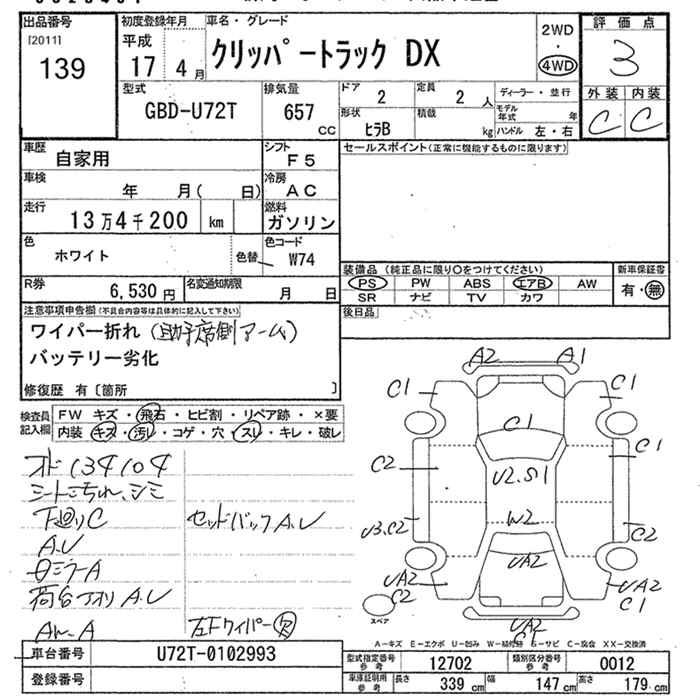 出品番号
[2011]
139
初度登録年月
平成
17 4 月
車名・グレード
クリッパートラック DX
2WD
・
4WD
評価点
3
外装 内装
C C
型式
GBD-U72T
排気量
657
CC
ドア
2
定員
2 人
ディーラー・並行
モデル年式 年
形状
ヒラB
積載
kg
ハンドル 左・右
車歴
自家用
シフト
F5
セールスポイント(正常に機能するものに限ります)
車検
年 月( 日)
冷房
AC
走行
13万4千200 km
燃料
ガソリン
色
ホワイト
色替
色コード
W74
装備品 (純正品に限り○をつけてください)
新車保証書
PS PW ABS エアB AW
有・無
SR ナビ TV カワ
R券
6,530 円
名変通知期限
月 日
後日品
注意事項申告欄(不具合内容等は具体的に記入して下さい)
ワイパー折れ (助手席側アーム)
バッテリー劣化
修復歴 有〔箇所 〕
検査員記入欄
FW キズ・飛石・ヒビ割・リペア跡・×要
内装 キズ・汚レ・コゲ・穴・スレ・キレ・破レ
オド134104
シートこちれ、シミ
下廻りC
セットバックA.U
A.U
ミラーA
荷台アオリA.U
AW-A
左Fワイパー欠
A2 A1
C1 C1
C1
C1
C2
U2.S1
U3.C2
W2
C2
UA2
UA2
C2
UA2
C1
UA2
スペア
A-キズ E-エクボ U-凹み W-補修跡 S-サビ C-腐食 XX-交換済
車台番号
U72T-0102993
登録番号
型式指定番号 参考
12702
類別区分番号 参考
0012
車庫証明用 参考
長さ 339 cm
幅 147 cm
高さ 179 cm